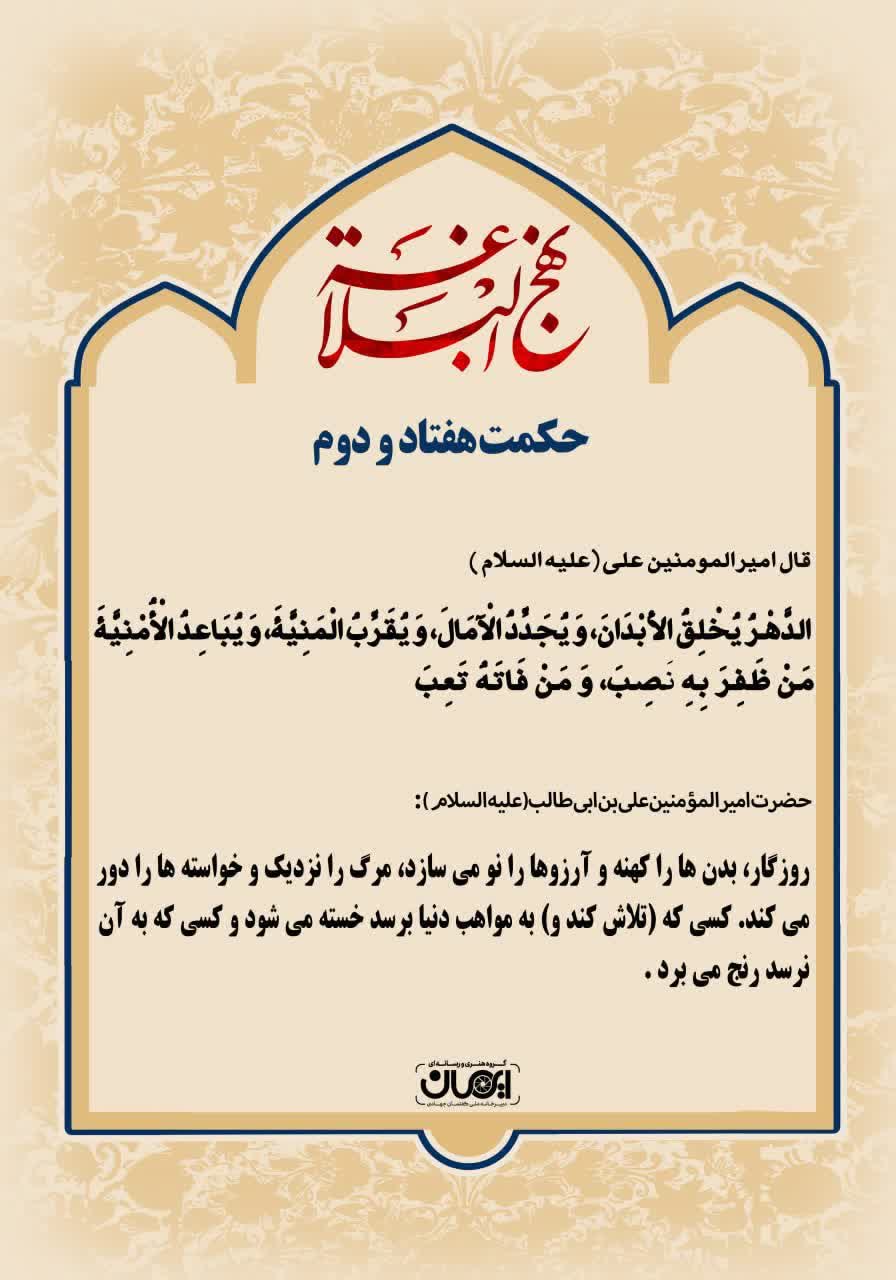 نهج البلاغة
حکمت هفتاد و دوم
قال امیرالمومنین علی(علیه السلام)
الدَّهْرُ يُخْلِقُ الأبْدَانَ، وَ يُجَدِّدُ الْآمَالَ، وَ يُقَرِّبُ الْمَنِيَّةَ، وَ يُبَاعِدُ الْأُمْنِيَّةَ
مَنْ ظَفِرَ بِهِ نَصِبَ، وَ مَنْ فَاتَهُ تَعِبَ
حضرت امیرالمؤمنین علی بن ابی طالب(علیه السلام):
روزگار، بدن ها را کهنه و آرزوها را نو می سازد، مرگ را نزدیک و خواسته ها را دور
می کند. کسی که (تلاش کند و) به مواهب دنیا برسد خسته می شود و کسی که به آن
نرسد رنج می برد .
گروه هنری و رسانه ای
ایرمان
دبیرخانه ملی گفتمان جهادی